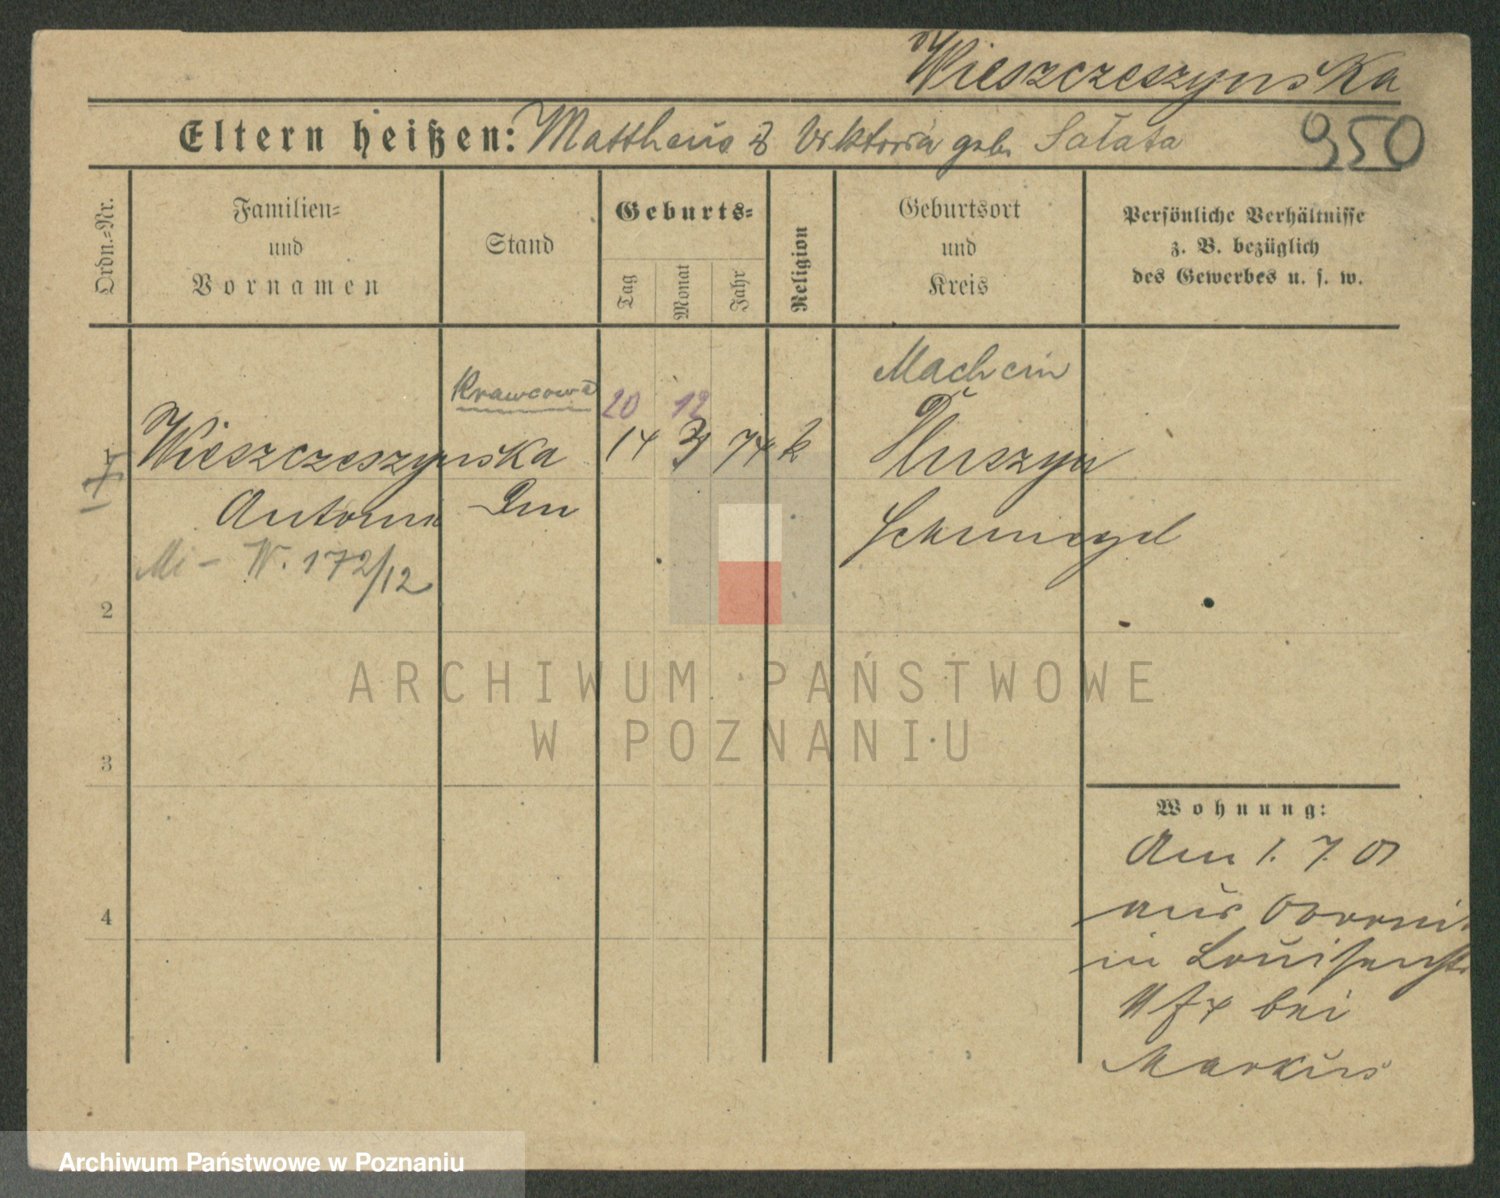 Wieszczeszynska
Eltern heißen: Mattheus & Viktoria geb. Sałata 950
Ordn.-Nr.
Familien-
und
Vornamen
Stand
Geburts-
Tag
Monat
Jahr
Religion
Geburtsort
und
Kreis
Persönliche Verhältnisse
z. B. bezüglich
des Gewerbes u. s. w.
Krawcowa
20 12
Machcin
Wieszczeszynska 14 3 74 k
Antonie
Schmiegel
Mi - W. 172/12
2
3
4
Wohnung:
Am 1. 7. 01
aus
in Louisenstr
bei
Markus
ARCHIWUM PAŃSTWOWE
W POZNANIU
Archiwum Państwowe w Poznaniu